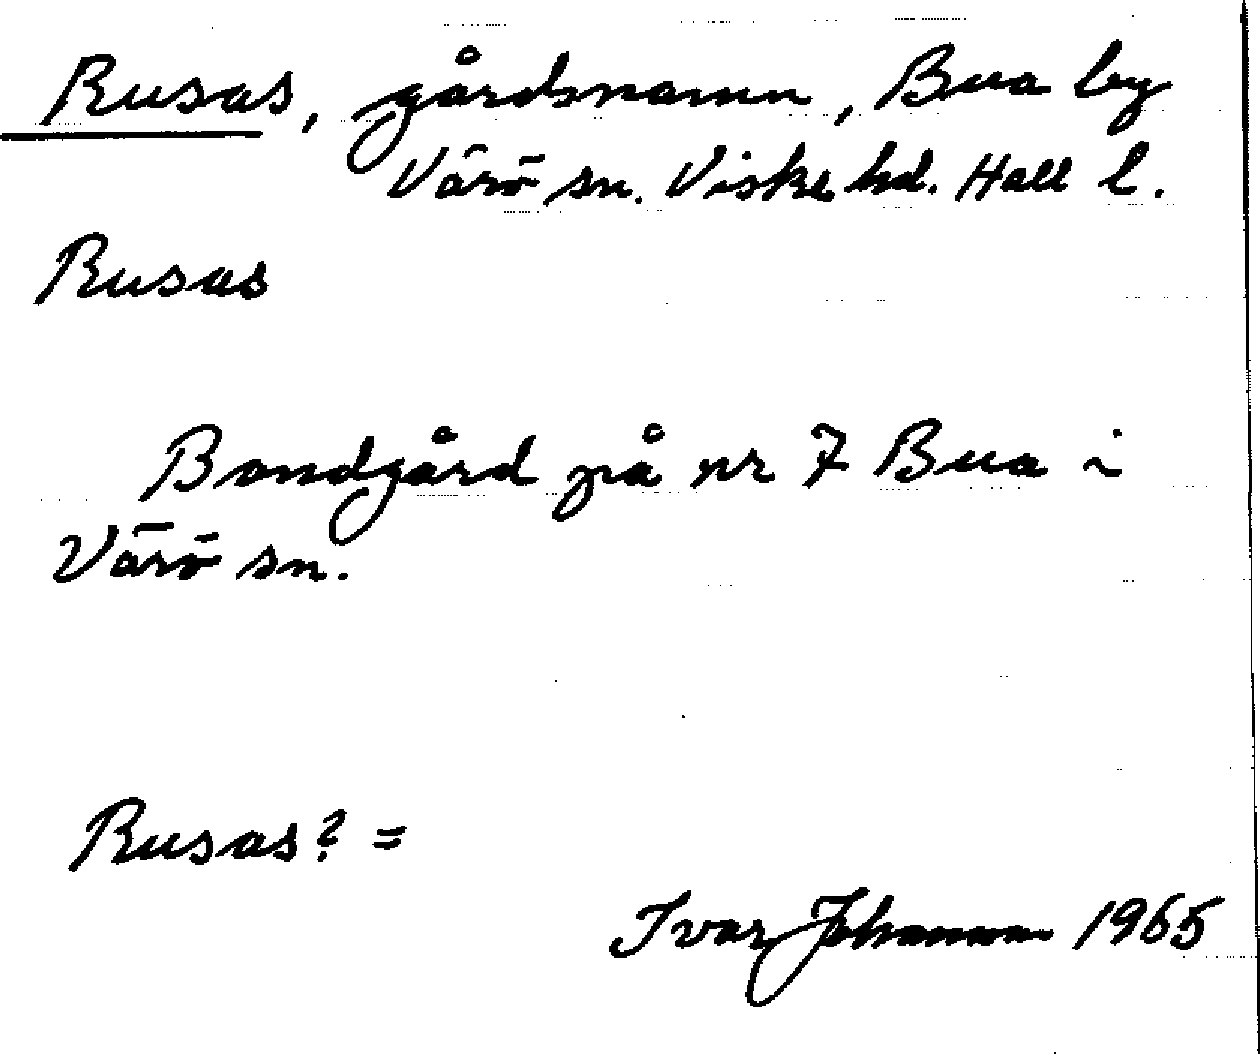 Rusas, gårdsnamn, Bua by
Värö sn. Viske hd. Hall l.
Rusas
Bondgård på nr 7 Bua i
Värö sn.
Rusas? =
Ivar Johansson 1965